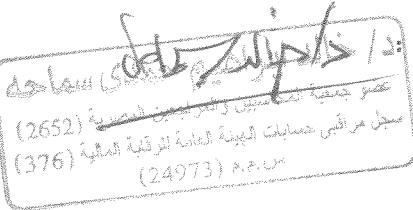 د/ سماحه
عضو جمعية المحاسبين والمراجعين المصرية (2652)
سجل مراقبي حسابات الهيئة العامة للرقابة المالية (376)
س.م.م (24973)